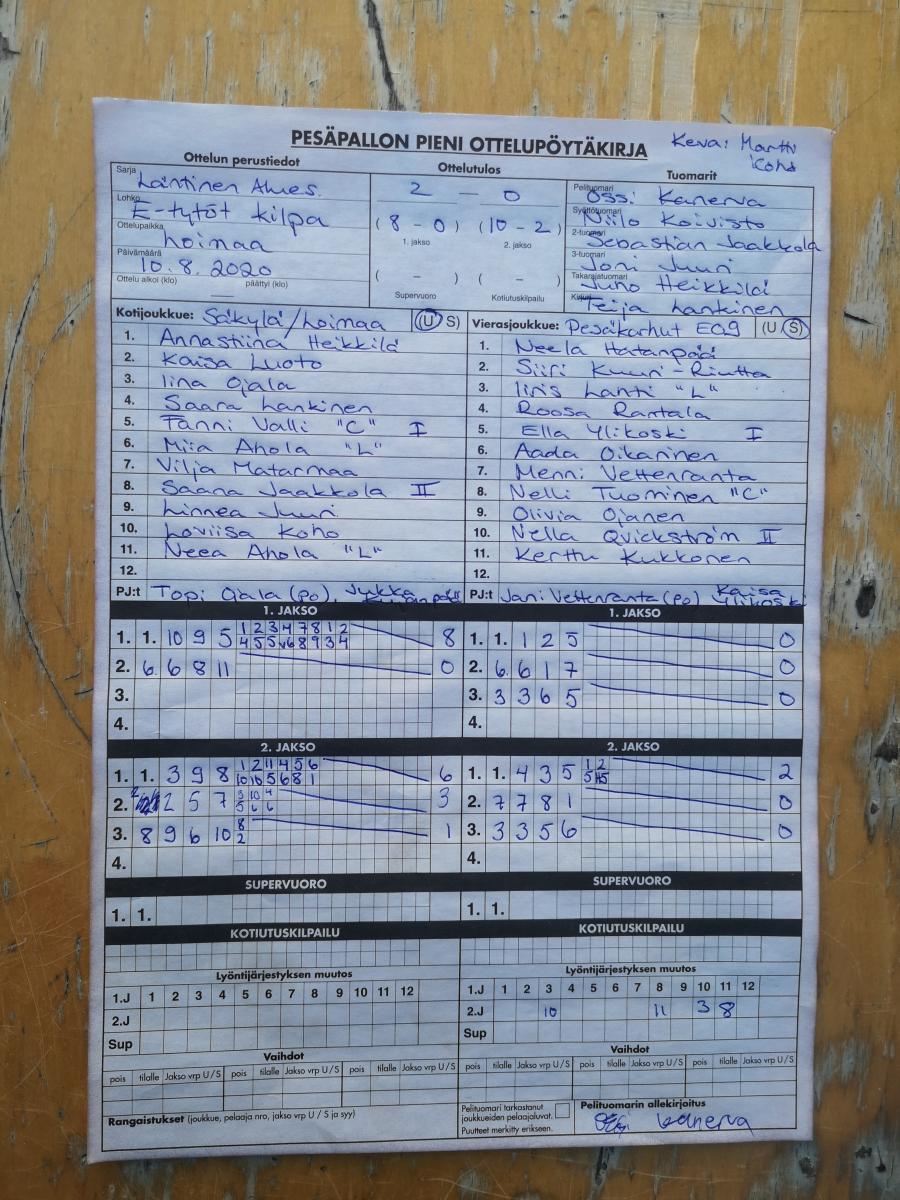 PESÄPALLON PIENI OTTELUPÖYTÄKIRJA
Keva: Martti Koho
Ottelun perustiedot
Ottelutulos
Tuomarit
Sarja Läntinen Alues.
Lohko E-tytöt kilpa
Ottelupaikka Loimaa
Päivämäärä 10.8.2020
Ottelu alkoi (klo) päättyi (klo)
2 – 0
(8 – 0) (10 – 2)
1. jakso 2. jakso
( – ) ( – )
Supervuoro Kotiutuskilpailu
Pelituomari Ossi Kanerva
Syöttötuomari Niilo Koivisto
2-tuomari Sebastian Jaakkola
3-tuomari Joni Juuri
Takarajatuomari Juho Heikkilä
Kirjuri Teija Lankinen
Kotijoukkue: Säkylä/Loimaa (U S)
1. Annastiina Heikkilä
2. Kaisa Luoto
3. Iina Ojala
4. Saara Lankinen
5. Fanni Valli "C" I
6. Miia Ahola "L"
7. Vilja Matarmaa
8. Saana Jaakkola II
9. Linnea Juuri
10. Loviisa Koho
11. Neea Ahola "L"
12.
PJ:t Topi Ojala (PO), Jukka
Vierasjoukkue: Pesäkarhut E09 (U S)
1. Neela Hatanpää
2. Siiri Kuuri-Riutta
3. Iiris Lanti "L"
4. Roosa Rantala
5. Ella Ylikoski I
6. Aada Oikarinen
7. Menni Vettenranta
8. Nelli Tuominen "C"
9. Olivia Ojanen
10. Nella Qvickström II
11. Kerttu Kukkonen
12.
PJ:t Jani Vettenranta (PO) Kaisa Ylikoski
1. JAKSO
1. 1. 10 9 5 1 2 3 4 7 8 1 2 8
4 5 5 6 8 9 3 4
2. 6. 6 8 11 0
3.
4.
1. JAKSO
1. 1. 1 2 5 0
2. 6. 6 1 7 0
3. 3 3 6 5 0
4.
2. JAKSO
1. 1. 3 9 8 1 2 11 4 5 6 6
10 10 5 6 8 1
2. 2 5 7 3 10 4 3
5 6 6
3. 8 9 6 10 8 1
2
4.
2. JAKSO
1. 1. 4 3 5 1 2 2
5
2. 7 7 8 1 0
3. 3 3 5 6 0
4.
SUPERVUORO
1. 1.
SUPERVUORO
1. 1.
KOTIUTUSKILPAILU
KOTIUTUSKILPAILU
Lyöntijärjestyksen muutos
1.J 1 2 3 4 5 6 7 8 9 10 11 12
2.J
Sup
Lyöntijärjestyksen muutos
1.J 1 2 3 4 5 6 7 8 9 10 11 12
2.J 10 11 3 8
Sup
Vaihdot
pois tilalle Jakso vrp U/S pois tilalle Jakso vrp U/S pois tilalle Jakso vrp U/S
Vaihdot
pois tilalle Jakso vrp U/S pois tilalle Jakso vrp U/S pois tilalle Jakso vrp U/S
Rangaistukset (joukkue, pelaaja nro, jakso vrp U / S ja syy)
Pelituomari tarkastanut
joukkueiden pelaajaluvat.
Puutteet merkitty erikseen.
Pelituomarin allekirjoitus
Kanerva